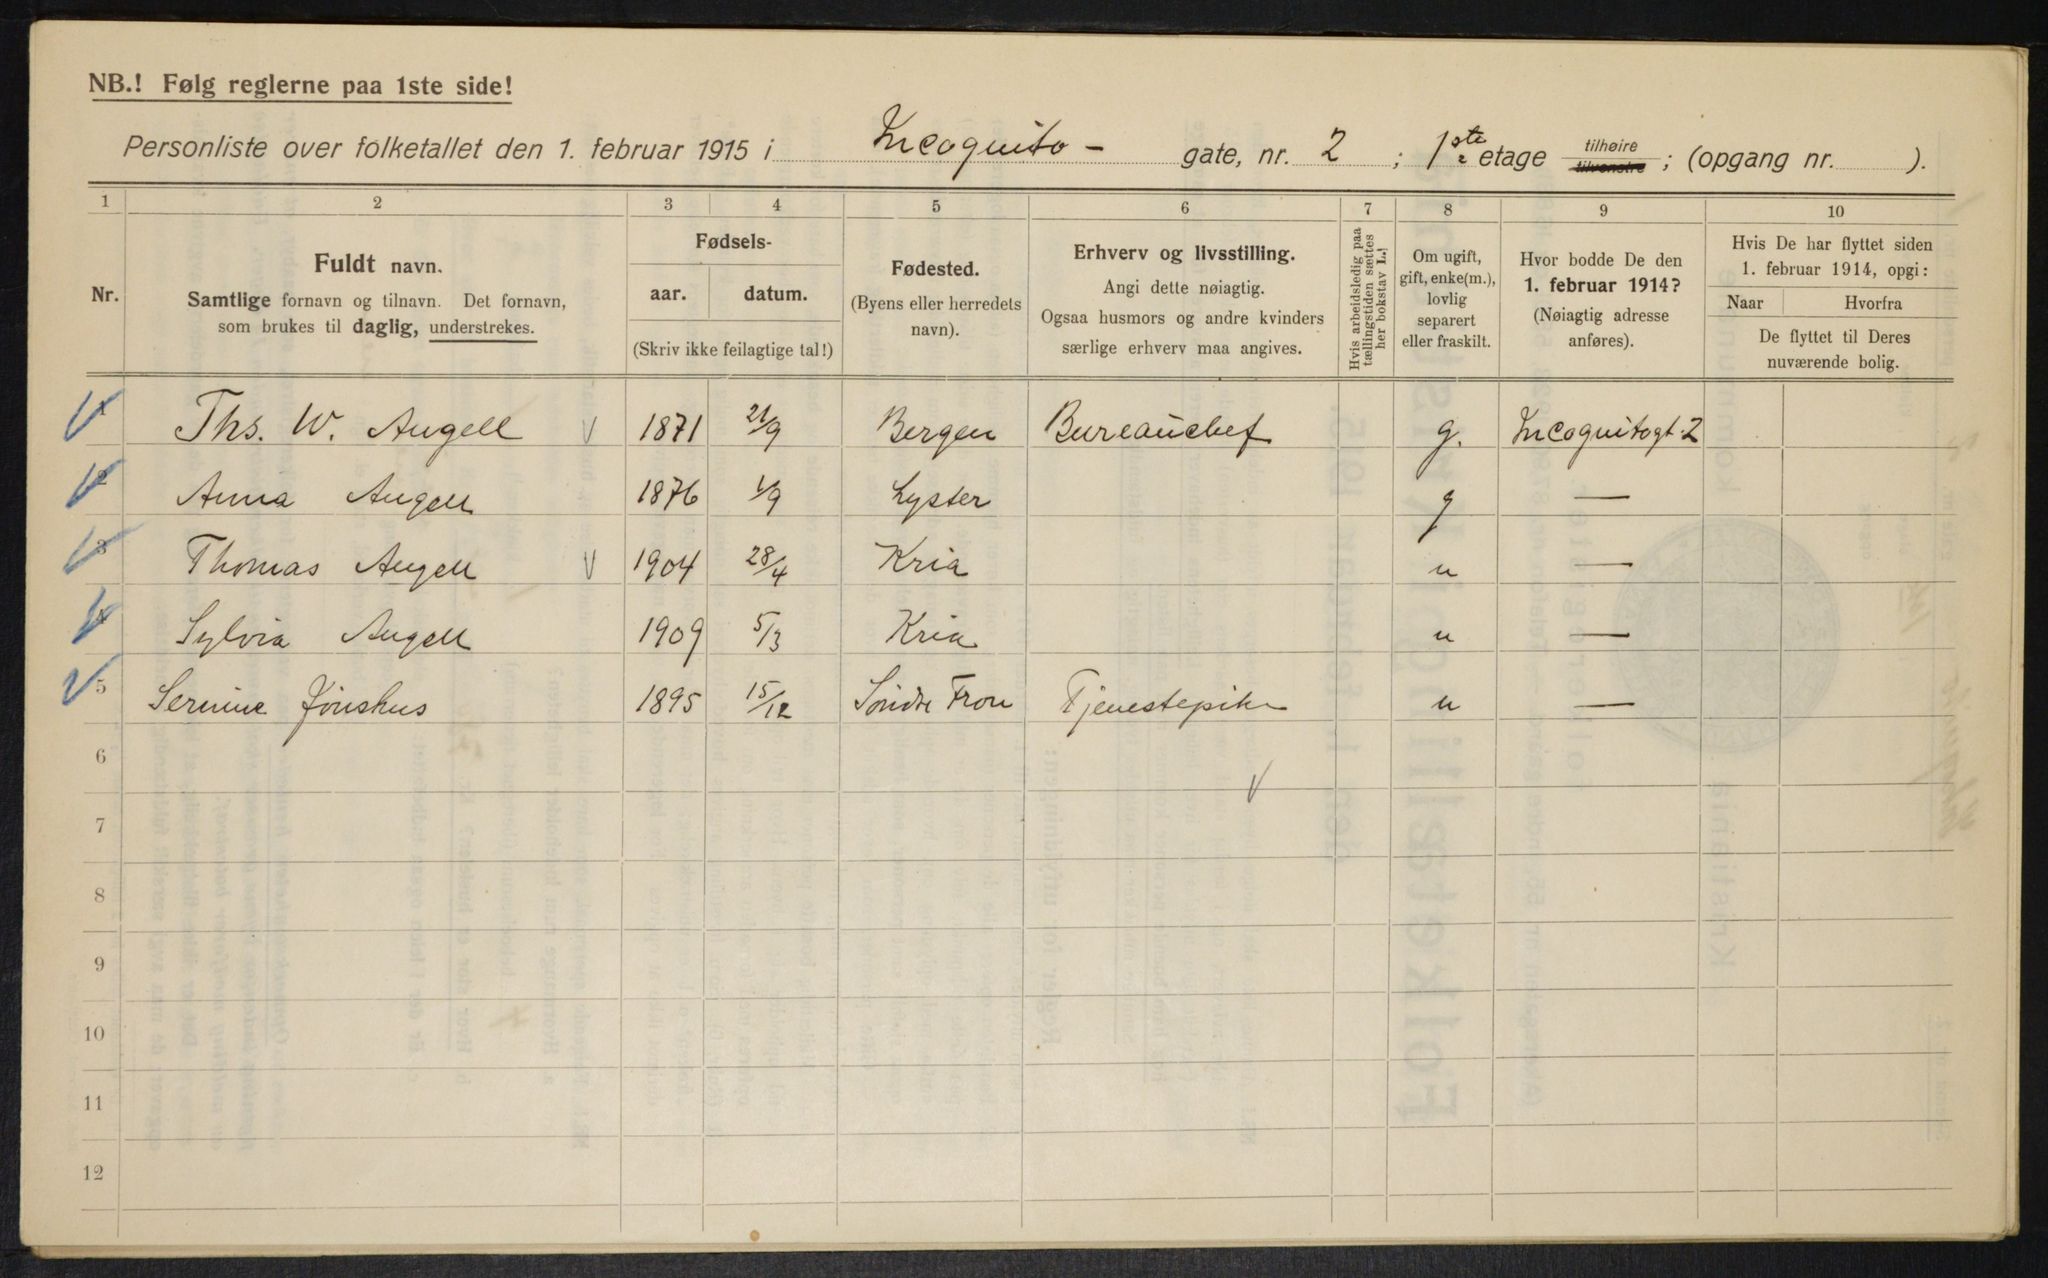 NB.! Følg reglerne paa 1ste side!
Personliste over folketallet den 1. februar 1915 i Incognito- gate, nr. 2 ; 1ste etage tilhøire tilvenstre ; (opgang nr. ).
1 2 3 4 5 6 7 8 9 10
Nr.
Fuldt navn.
Samtlige fornavn og tilnavn. Det fornavn,
som brukes til daglig, understrekes.
Fødsels-
aar. datum.
(Skriv ikke feilagtige tal!)
Fødested.
(Byens eller herredets
navn).
Erhverv og livsstilling.
Angi dette nøiagtig.
Ogsaa husmors og andre kvinders
særlige erhverv maa angives.
Hvis arbeidsledig paa
tællingstiden sættes
her bokstav L.!
Om ugift,
gift, enke(m.),
lovlig
separert
eller fraskilt.
Hvor bodde De den
1. februar 1914?
(Nøiagtig adresse
anføres).
Hvis De har flyttet siden
1. februar 1914, opgi:
Naar Hvorfra
De flyttet til Deres
nuværende bolig.
1 Ths. W. Angell V 1871 21/9 Bergen Bureauchef g. Incognitogt. 2
2 Anna Angell 1876 1/9 Lyster g —
3 Thomas Angell V 1904 28/4 Kria u —
4 Sylvia Angell 1909 5/3 Kria u —
5 Serine 1895 15/12 Søndre Fron Tjenestepike u —
6
V
7
8
9
10
11
12